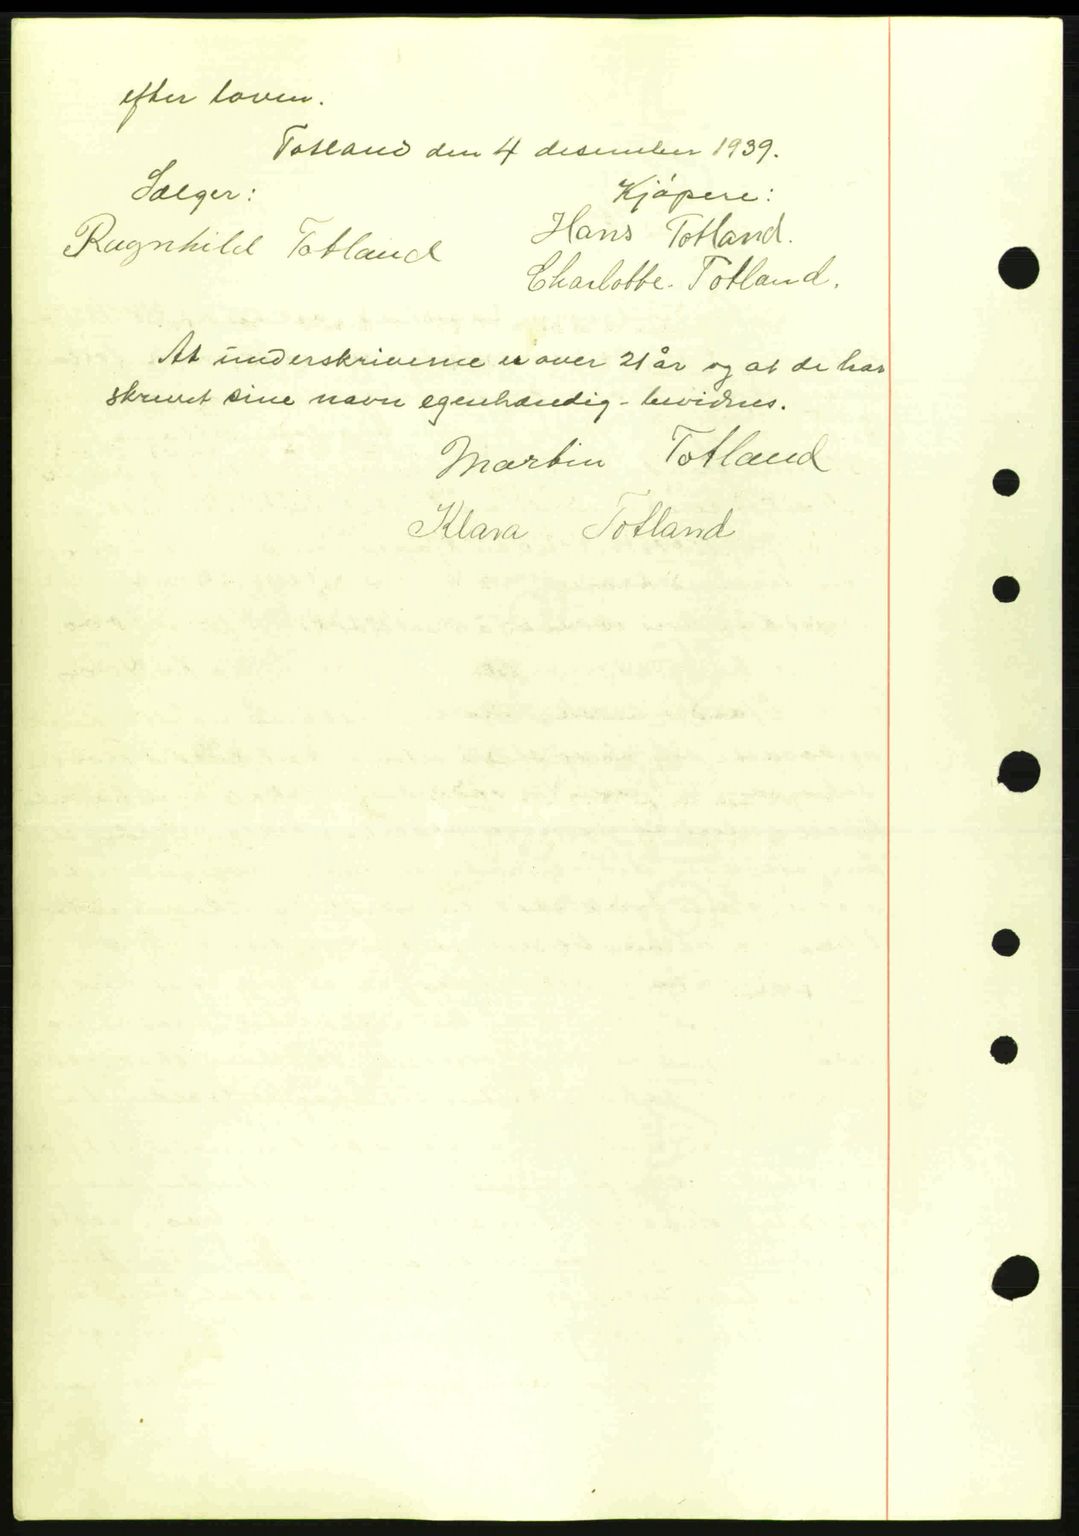 efter loven.
Totland den 4 desember 1939.
Sælger:
Kjøpere:
Ragnhild Totland
Hans Totland.
Charlotte Totland.
At underskriverne er over 21 år og at de har
skrevet sine navn egenhændig - bevidnes.
Martin Totland
Klara Totland